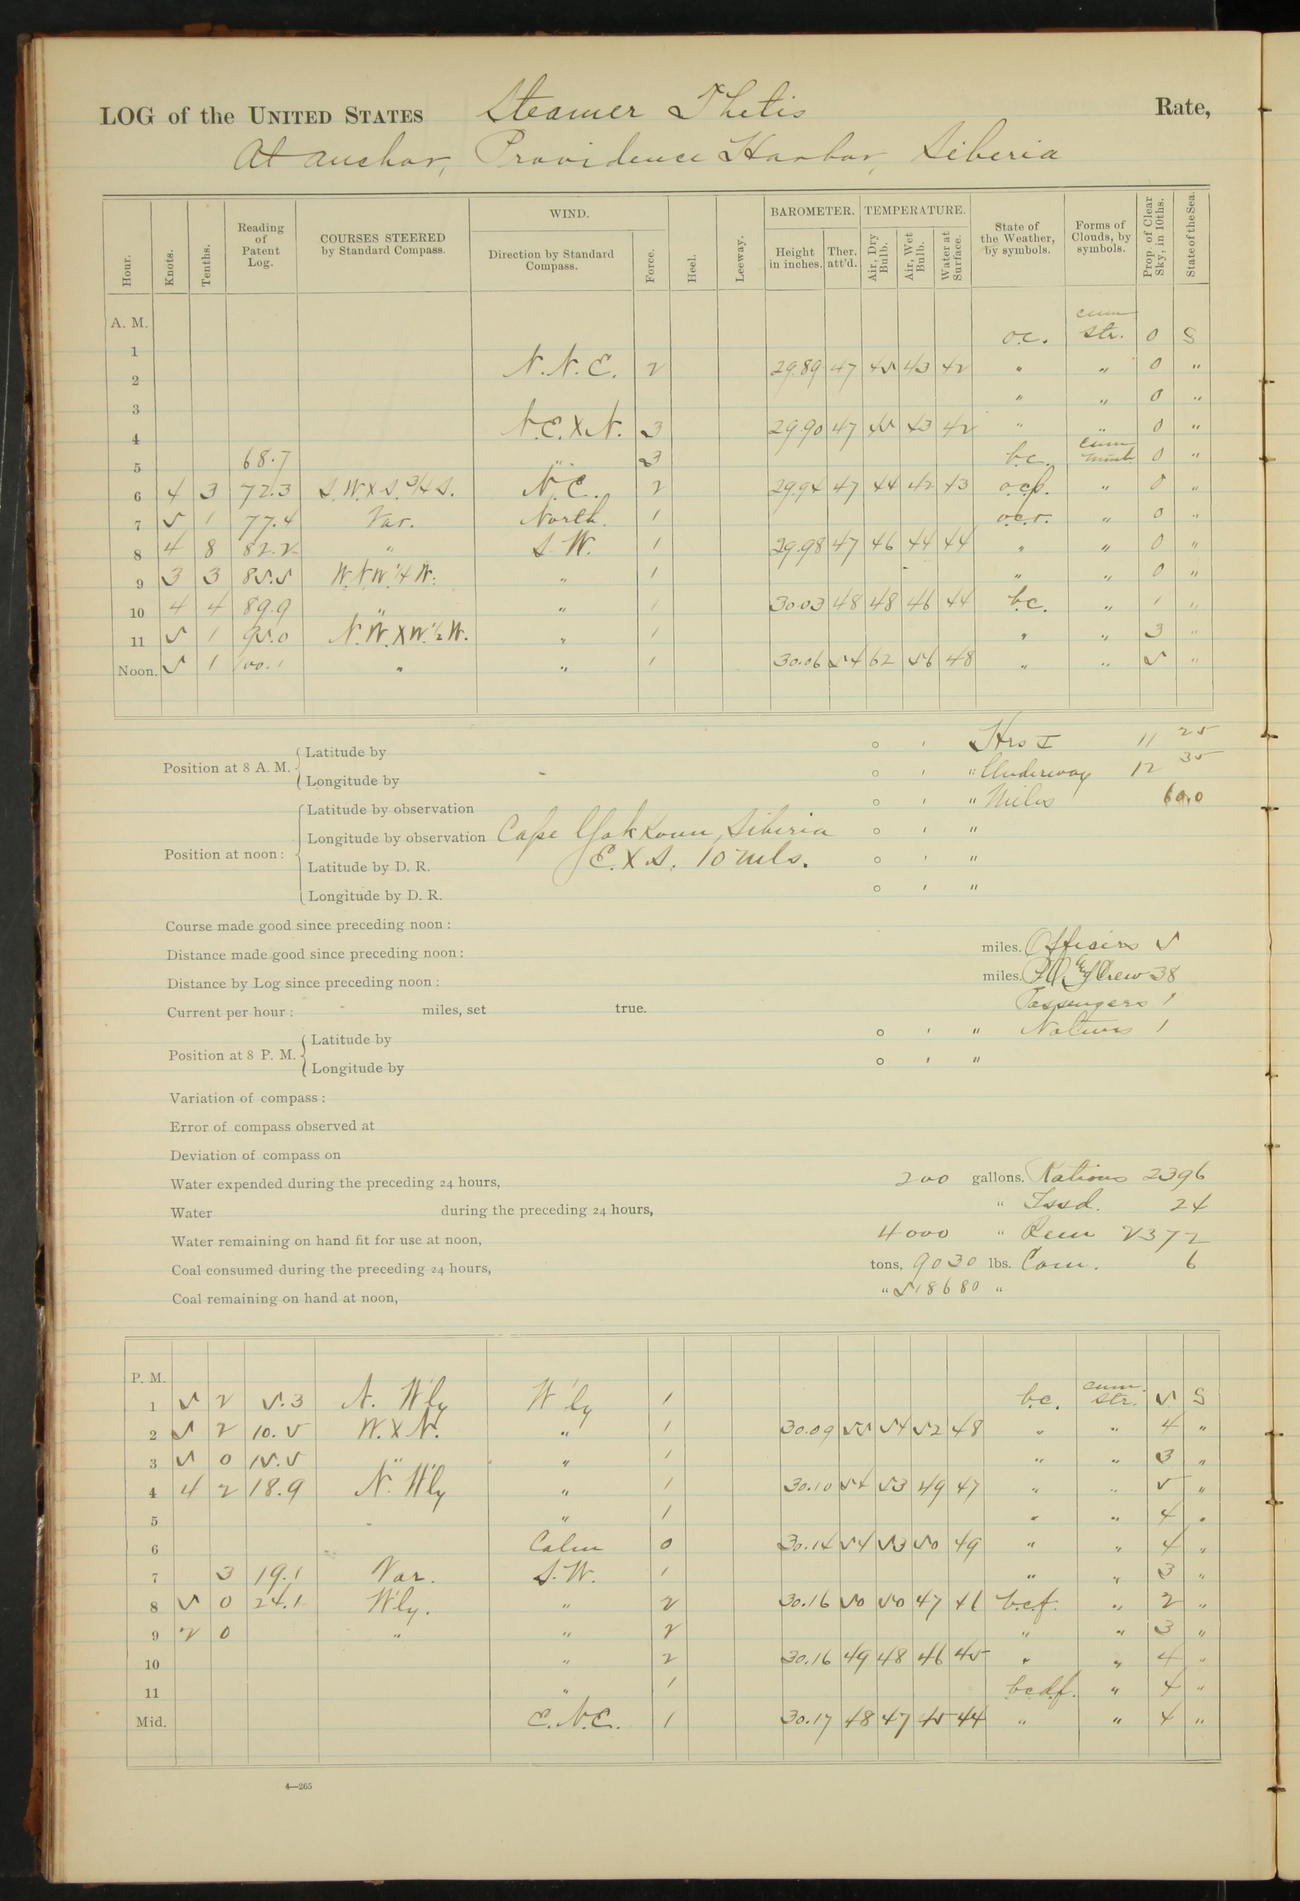 LOG of the UNITED STATES Steamer Thetis Rate,
At anchor, Providence Harbor, Siberia
Hour. Knots. Tenths. Reading of Patent Log. COURSES STEERED by Standard Compass. WIND. Direction by Standard Compass. Force. Heel. Leeway. BAROMETER. Height in inches. Ther. att'd. TEMPERATURE. Air, Dry Bulb. Air, Wet Bulb. Water at Surface. State of the Weather, by symbols. Forms of Clouds, by symbols. Prop. of Clear Sky, in 10ths. State of the Sea.
A. M.
1 o.c. cum str. 0 S
2 N.N.E. 2 29.89 47 45 43 42 " " 0 "
3 " " 0 "
4 N.E.XN. 3 29.90 47 45 43 42 " " 0 "
5 68.7 " 3 b.c. cum 0 "
6 4 3 72.3 S.WXS.3/4S. N.E. 2 29.94 47 44 42 43 o.c.p. " 0 "
7 5 1 77.4 Var. North. 1 o.c.r. " 0 "
8 4 8 82.2 " S.W. 1 29.98 47 46 44 44 " " 0 "
9 3 3 85.5 W.N.W.1/4W. " 1 " " 0 "
10 4 4 89.9 " " 1 30.03 48 48 46 44 b.c. " 1 "
11 5 1 95.0 N.W.XW.1/2W. " 1 " " 3 "
Noon. 5 1 100.1 " " 1 30.06 54 62 56 48 " " 5 "
Position at 8 A. M. Latitude by ° ' Hrs I 11 25
Longitude by ° ' " Underway 12 35
Position at noon: Latitude by observation ° ' " Miles 60.0
Longitude by observation Cape Yakkoun, Siberia ° ' "
Latitude by D. R. E.XS. 10 mls. ° ' "
Longitude by D. R. ° ' "
Course made good since preceding noon:
Distance made good since preceding noon: miles. Officers 5
Distance by Log since preceding noon: miles. Crew 38
Current per hour: miles, set true. Passengers 1
Position at 8 P. M. Latitude by ° ' " Natives 1
Longitude by ° ' "
Variation of compass:
Error of compass observed at
Deviation of compass on
Water expended during the preceding 24 hours, 200 gallons. Rations 2396
Water during the preceding 24 hours, " Issd. 24
Water remaining on hand fit for use at noon, 4000 " Rem 2372
Coal consumed during the preceding 24 hours, tons, 9030 lbs. Com. 6
Coal remaining on hand at noon, " 518680 "
P. M.
1 5 2 5.3 N. W'ly W'ly 1 b.c. cum. str. 5 S
2 5 2 10.5 W.XN. " 1 30.09 55 54 52 48 " " 4 "
3 5 0 15.5 " " 1 " " 3 "
4 4 2 18.9 N. W'ly " 1 30.10 54 53 49 47 " " 5 "
5 " 1 " " 4 "
6 Calm 0 30.14 54 53 50 49 " " 4 "
7 3 19.1 Var. S.W. 1 " " 3 "
8 5 0 24.1 W'ly. " 2 30.16 50 50 47 41 b.c.f. " 2 "
9 2 0 " " 2 " " 3 "
10 " 2 30.16 49 48 46 45 " " 4 "
11 " 1 b.c.d.f. " 4 "
Mid. E.N.E. 1 30.17 48 47 45 44 " " 4 "
4—265